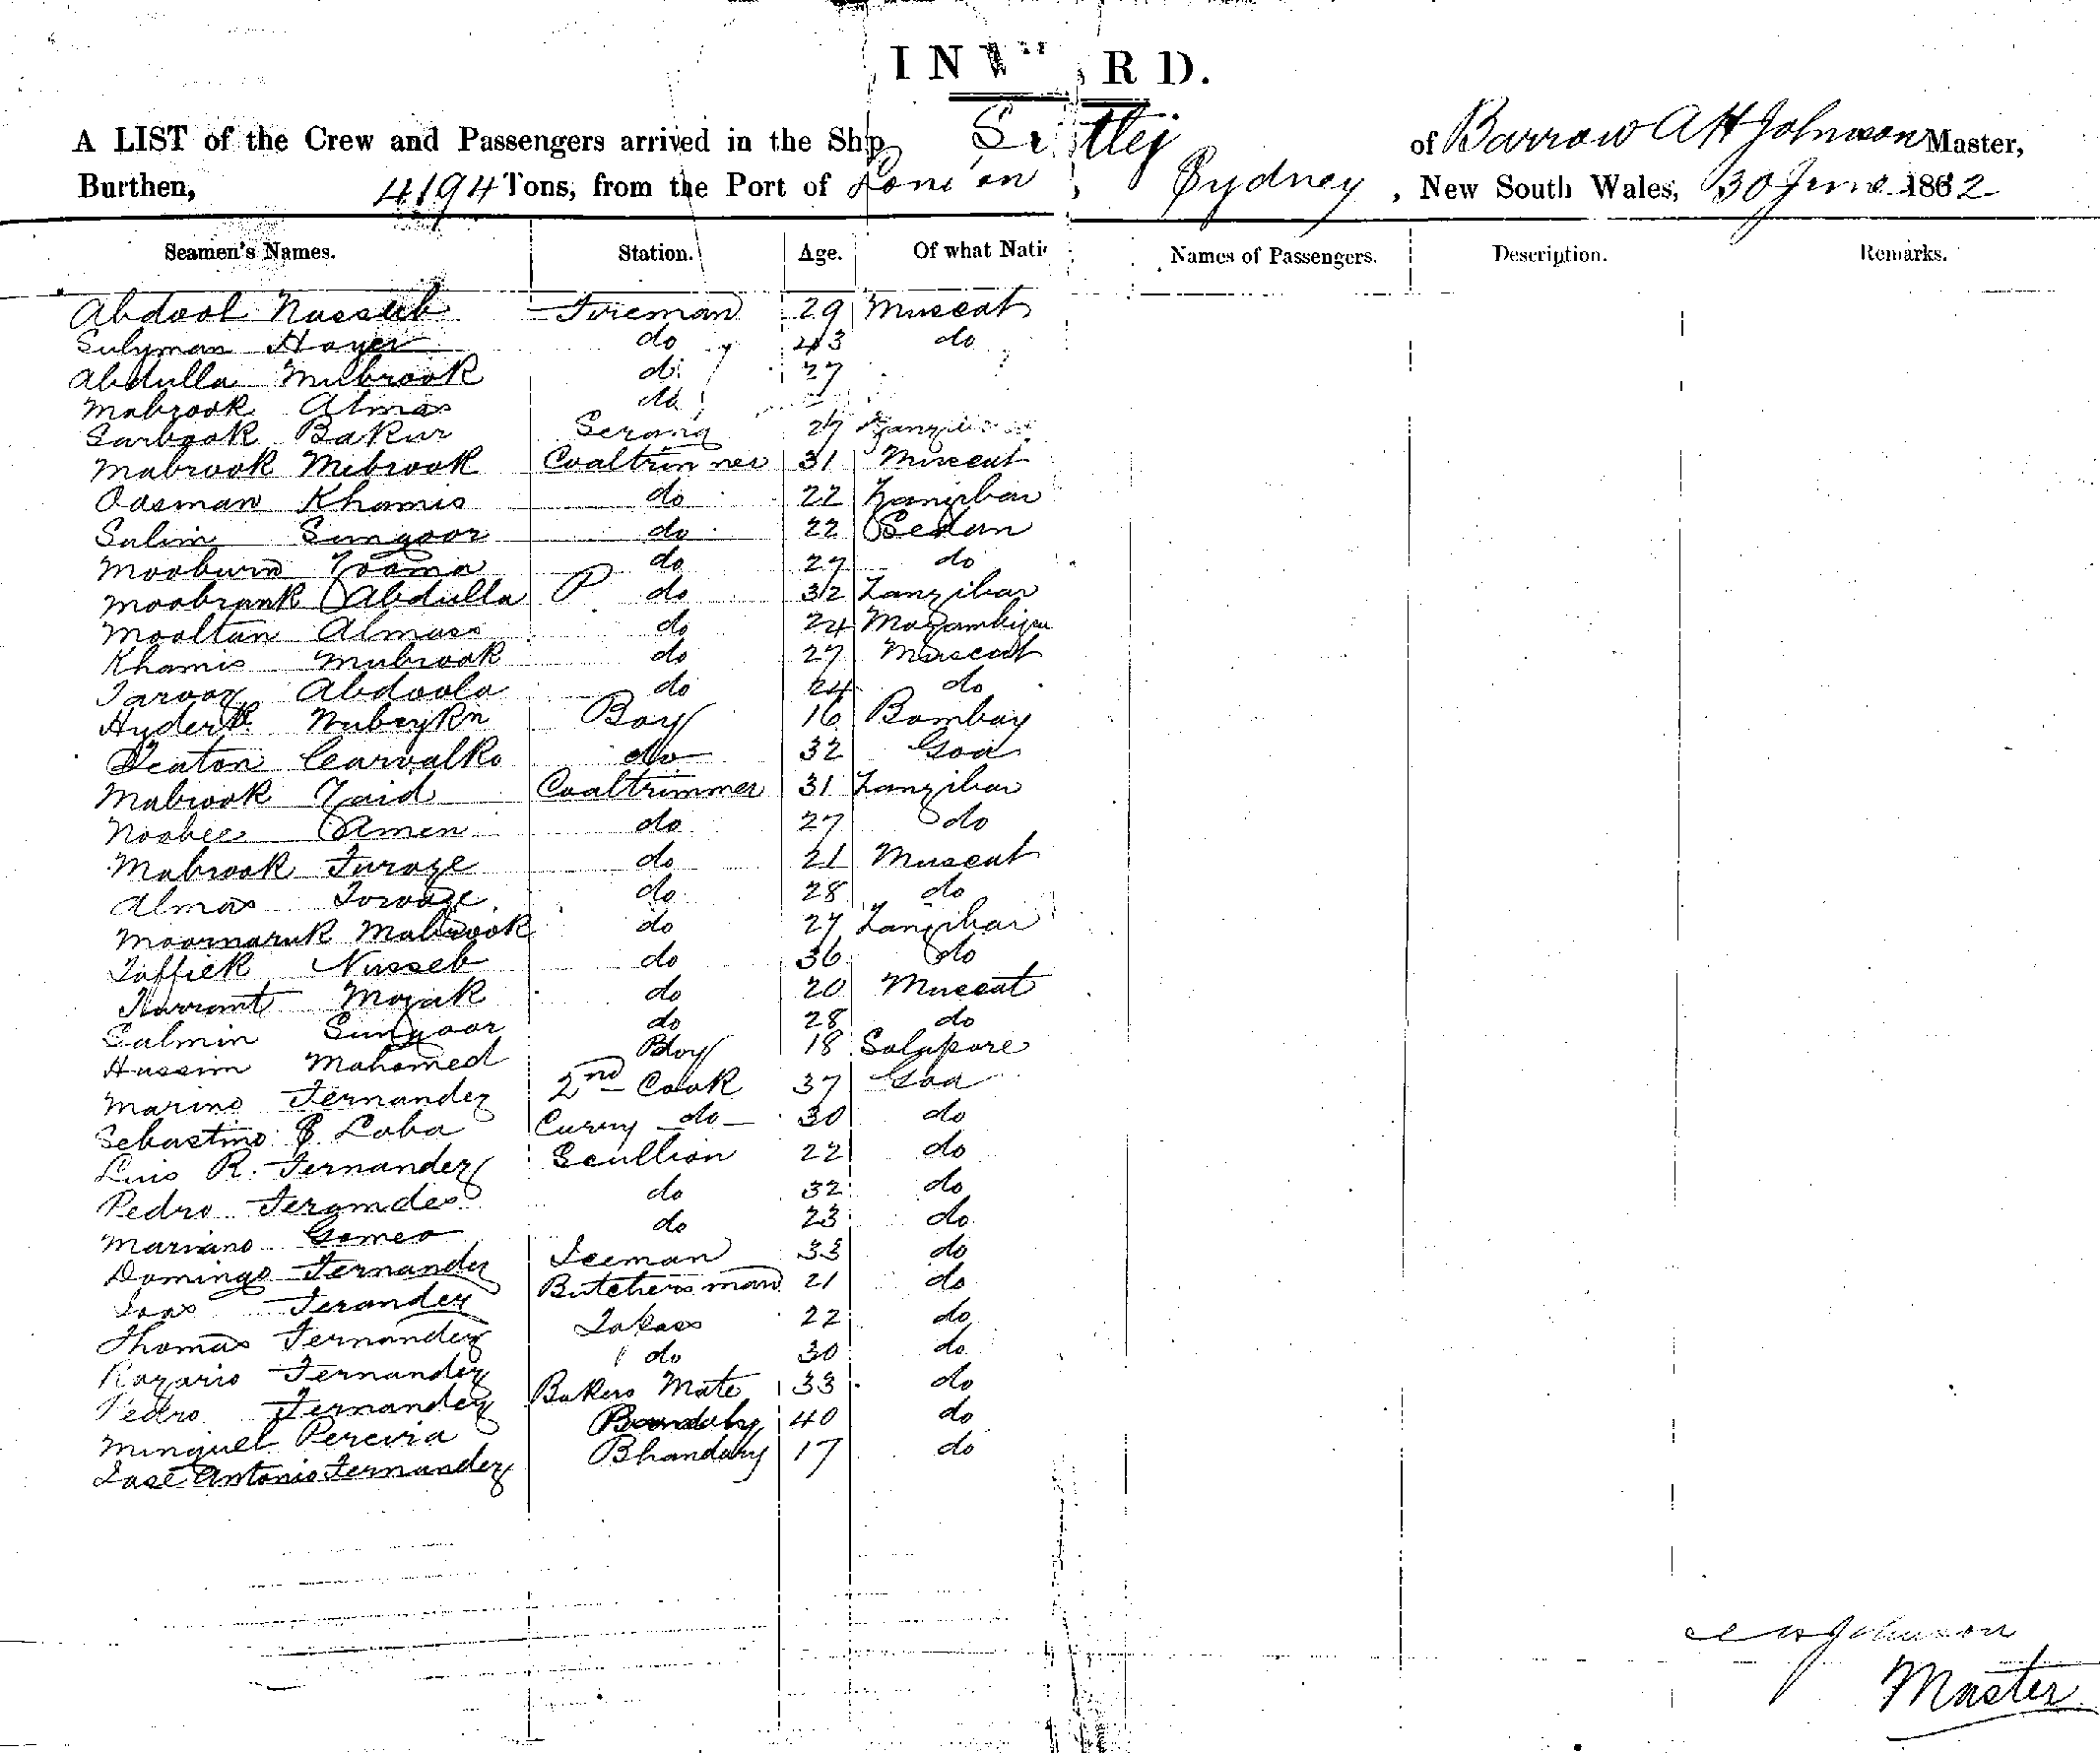 INW RD.
A LIST of the Crew and Passengers arrived in the Ship Sutlej of Barrow A H Johnson Master,
Burthen, 4194 Tons, from the Port of London, Sydney, New South Wales, 30 June 1882
Seamen's Names. Station. Age. Of what Nati Names of Passengers. Description. Remarks.
Abdool Nusseeb Fireman 29 Muscat
Sulyman Hayer do 43 do
Abdulla Mubrook do 27
Mabrook Almas do
Sarbook Bakur Serang 27 Zanzibar
Mabrook Mebrook Coaltrimmer 31 Muscat
Oosman Khamis do 22 Zanzibar
Salim Sungoor do 22 Sedan
Mooburd Tooma do 27 do
Moobrank Abdulla P do 32 Zanzibar
Mooltan Almass do 24 Mozambique
Khamis Mubrook do 27 Muscat
Farooz Abdoola do 24 do
Hyder Boy 16 Bombay
Caetan Carvalho do 32 Goa
Mabrook Zaid Coaltrimmer 31 Zanzibar
Noobee Amen do 27 do
Mabrook Furoze do 21 Muscat
Almas Foroze do 28 do
Moornaruk Mabrook do 27 Zanzibar
Toffiek Nusseb do 36 do
Mozak do 20 Muscat
Salmin Sungoor do 28 do
Hussim Mahomed Boy 18 Solapore
Marino Fernandez 2nd Cook 37 Goa
Sebastino Loba Curry do 30 do
Luis R. Fernandez Scullion 22 do
Pedro Feramdes do 32 do
Mariano Gomes do 23 do
Domingo Fernandez Iceman 33 do
Joas Ferandez Butchers man 21 do
Thomas Fernandez Topass 22 do
Rozario Fernandez do 30 do
Pedro Fernandez Bakers Mate 33 do
Minguel Pereira 40 do
Jose Antonio Fernandez Bhandary 17 do
A H Johnson
Master